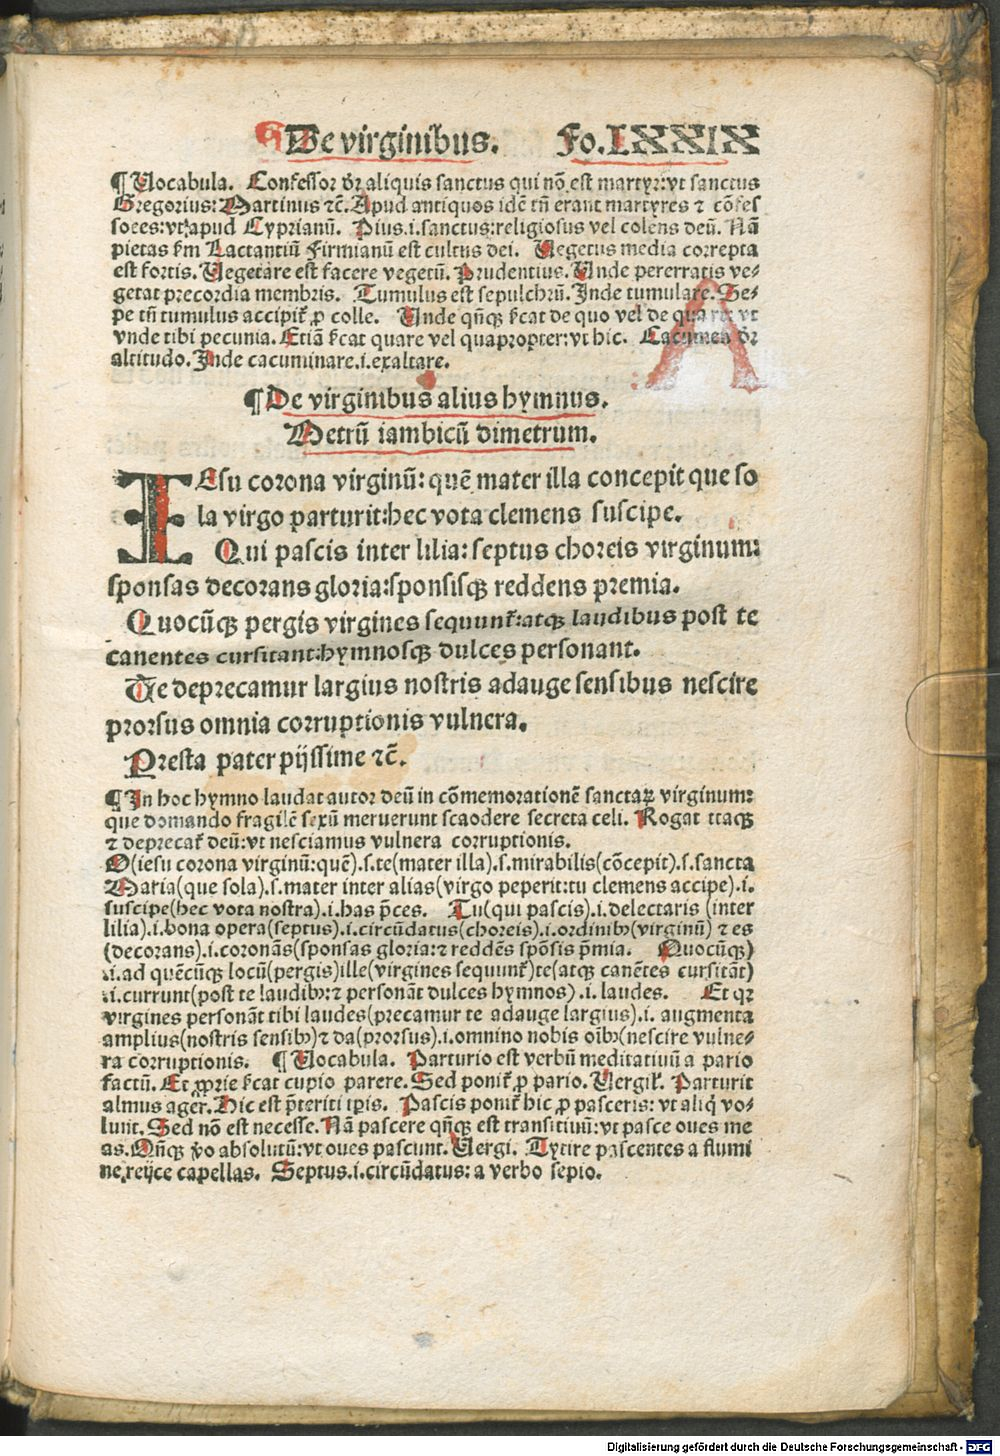 De virginibus. Fo.LXXIX
¶ Vocabula. Confessor dr̄ aliquis sanctus qui nō est martyr: vt sanctus
Gregorius: Martinus ⁊c̄. Apud antiquos idē tn̄ erant martyres ⁊ cōfes
sores: vt apud Cyprianū. Pius .i. sanctus: religiosus vel colens deū. Nā
pietas ẜm Lactantiū Firmianū est cultus dei. Vegetus media correpta
est fortis. Vegetare est facere vegetū. Prudentius. Unde pererratis ve⸗
getat precordia membris. Tumulus est sepulchrū. Inde tumulare. Se⸗
pe tn̄ tumulus accipit᷑ ꝓ colle. Unde qn̄qꝫ ẜcat de quo vel de qua re: vt
vnde tibi pecunia. Etiā ẜcat quare vel quapropter: vt hic. Cacumen dr̄
altitudo. Inde cacuminare .i. exaltare.
¶ De virginibus alius hymnus.
Metrū iambicū dimetrum.
IEsu corona virginū: quē mater illa concepit que so
la virgo parturit: hec vota clemens suscipe.
Qui pascis inter lilia: septus choreis virginum:
sponsas decorans gloria: sponsisqꝫ reddens premia.
Quocūqꝫ pergis virgines sequunt᷑: atqꝫ laudibus post te
canentes cursitant: hymnosqꝫ dulces personant.
Te deprecamur largius nostris adauge sensibus nescire
prorsus omnia corruptionis vulnera.
Presta pater pijssime ⁊c̄.
¶ In hoc hymno laudat autor deū in cōmemorationē sanctaꝝ virginum:
que domando fragilē sexū meruerunt scaodere secreta celi. Rogat itaqꝫ
⁊ deprecat᷑ deū: vt nesciamus vulnera corruptionis.
O (iesu corona virginū: quē) .s. te (mater illa) .s. mirabilis (cōcepit) .s. sancta
Maria (que sola) .s. mater inter alias (virgo peperit: tu clemens accipe) .i.
suscipe (hec vota nostra) .i. has p̄ces. Tu (qui pascis) .i. delectaris (inter
lilia) .i. bona opera (septus) .i. circūdatus (choreis) .i. ordinibꝫ (virginū) ⁊ es
(decorans) .i. coronās (sponsas gloria: ⁊ reddēs spōsis p̄mia. Quocūqꝫ)
.i. ad quēcūqꝫ locū (pergis) ille (virgines sequunt᷑) te (atqꝫ canētes cursitāt)
.i. currunt (post te laudibꝫ: ⁊ personāt dulces hymnos) .i. laudes. Et qꝛ
virgines personāt tibi laudes (precamur te adauge largius) .i. augmenta
amplius (nostris sensibꝫ) ⁊ da (prorsus) .i. omnino nobis oībꝫ (nescire vulne⸗
ra corruptionis. ¶ Vocabula. Parturio est verbū meditatiuū a pario
factū. Et ꝓprie ẜcat cupio parere. Sed ponit᷑ ꝓ pario. Vergil᷑. Parturit
almus ager. Hic est p̄teriti tp̄is. Pascis ponit᷑ hic ꝓ pasceris: vt aliq̇ vo⸗
lunt. Sed nō est necesse. Nā pascere qn̄qꝫ est transitiuū: vt pasce oues me
as. Qn̄qꝫ ṽo absolutū: vt oues pascunt. Vergi. Tytire pascentes a flumi
ne reijce capellas. Septus .i. circūdatus: a verbo sepio.
A
Digitalisierung gefördert durch die Deutsche Forschungsgemeinschaft - DFG